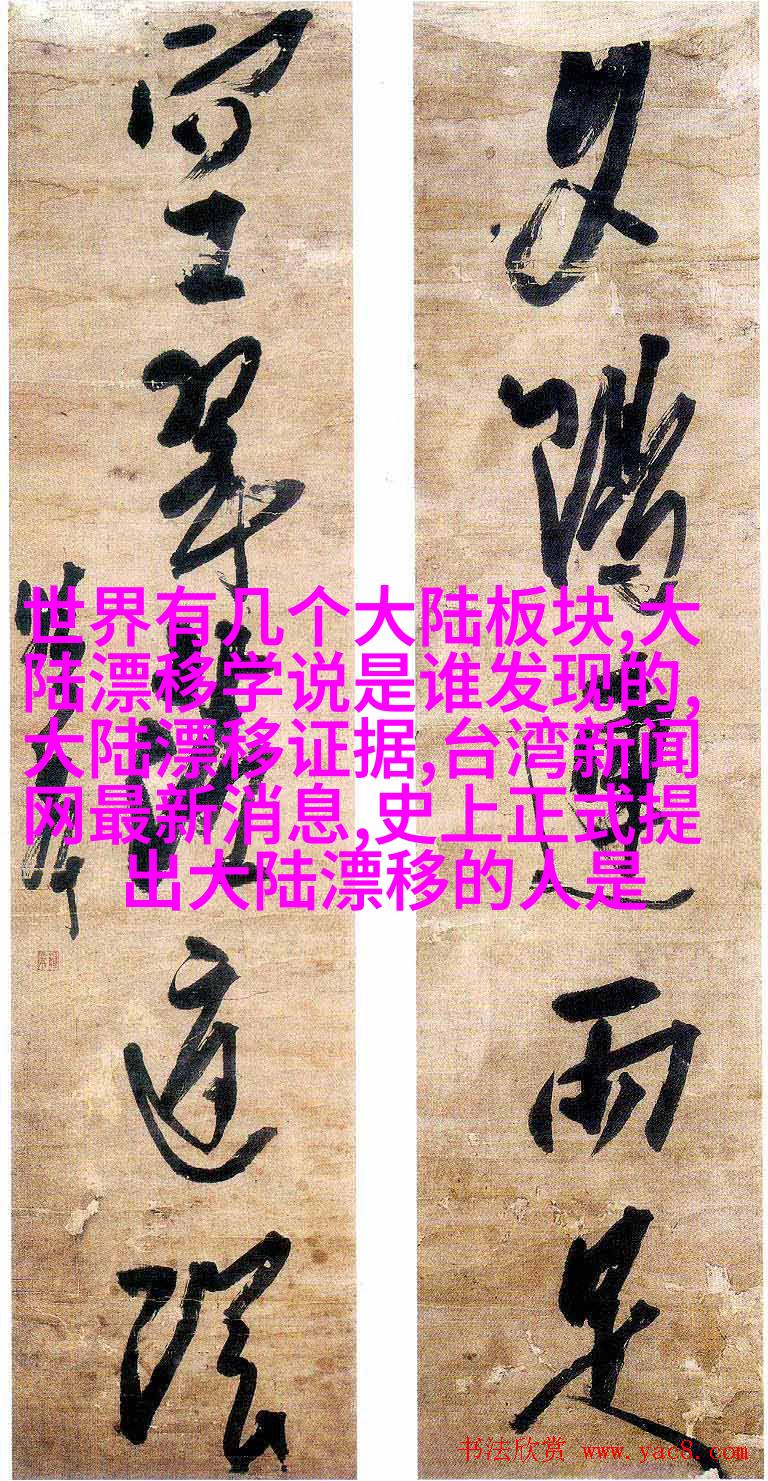 夕陽連雨足
空翠落庭陰
世界有几个大陆板块,大
陆漂移学说是谁发现的,
大陆漂移证据,台湾新闻
网最新消息,史上正式提
出大陆漂移的人是
书法欣赏 www.yac8.com